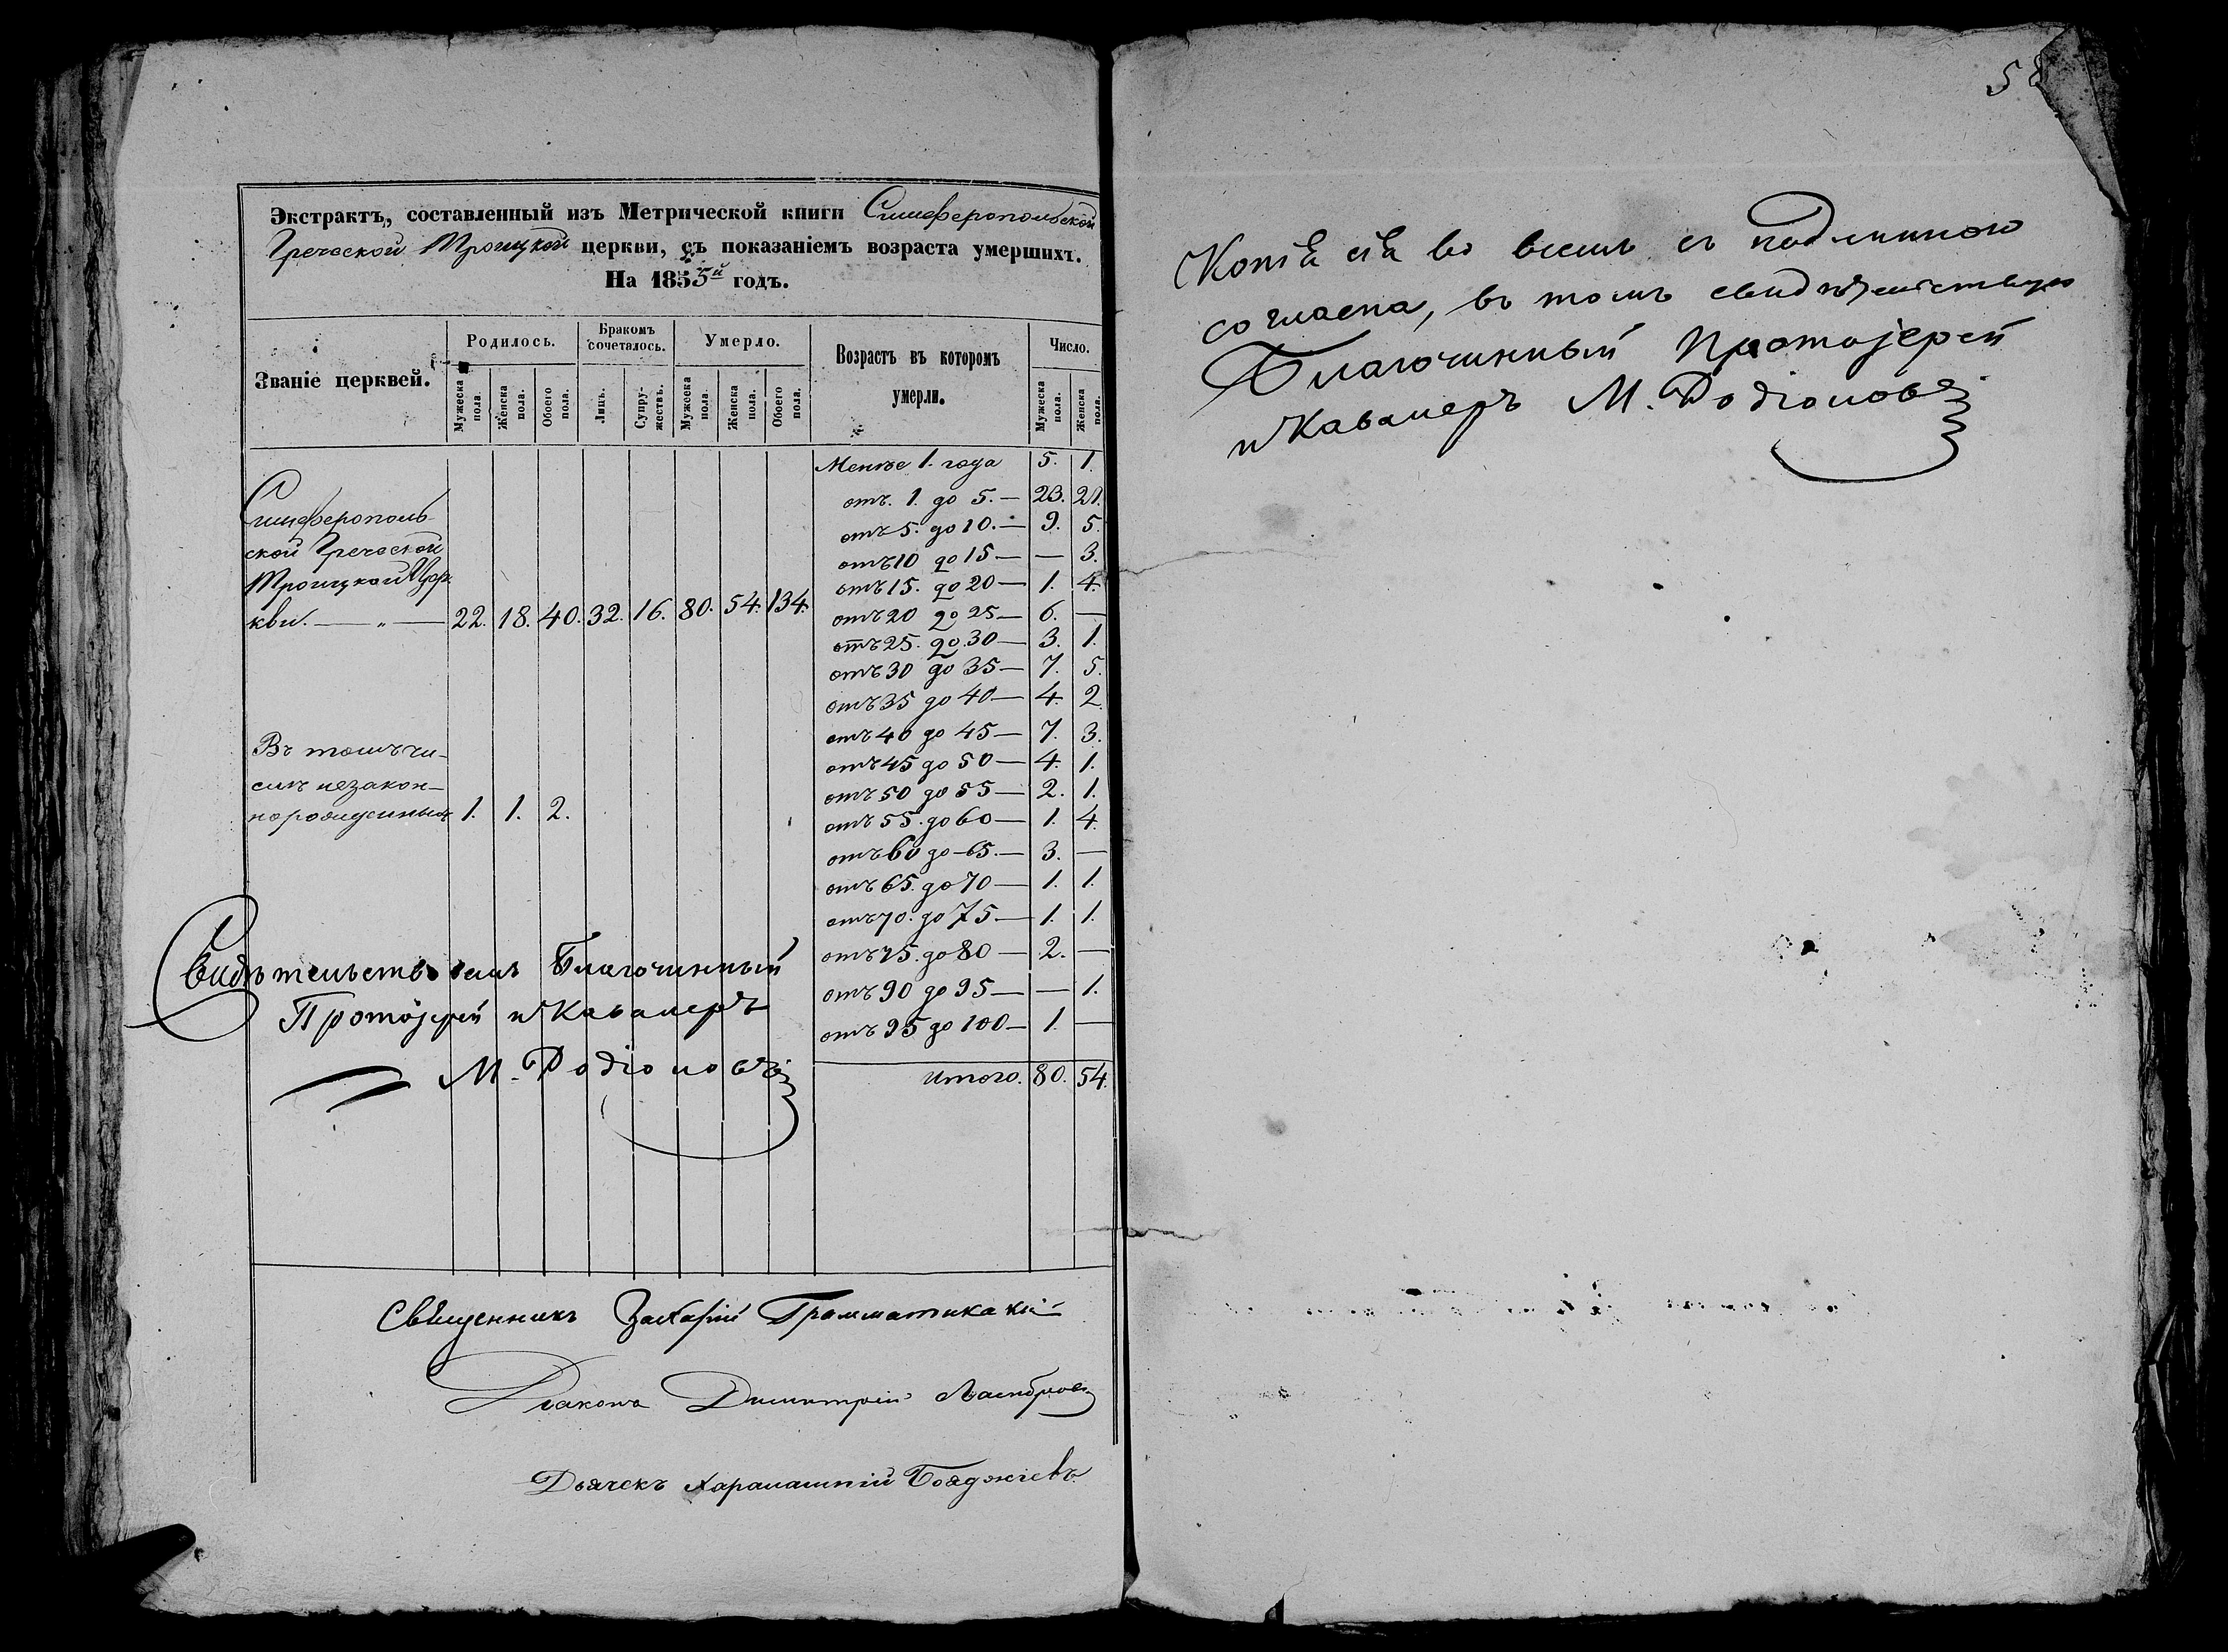 Экстрактъ, составленный изъ Метрической книги Симферопольской
Греческой Троицкой церкви, съ показаніемъ возраста умершихъ.
На 1855й годъ.
Званіе церквей.
Родилось.
Бракомъ сочеталось.
Умерло.
Возрастъ въ которомъ умерли.
Число.
Мужеска пола.
Женска пола.
Обоего пола.
Лицъ.
Супружествъ.
Мужеска пола.
Женска пола.
Обоего пола.
Мужеска пола.
Женска пола.
Симферополь-
ской Греческой
Троицкой Цер-
кви. — „ — 22. 18. 40. 32. 16. 80. 54. 134.
Въ томъ чи-
слѣ незакон-
норожденныхъ 1. 1. 2.
Менѣе 1. года 5. 1.
отъ 1. до 5. — 23. 21.
отъ 5. до 10. — 9. 5.
отъ 10 до 15 — — 3.
отъ 15. до 20 — 1. 4.
отъ 20 до 25 — 6. —
отъ 25. до 30 — 3. 1.
отъ 30 до 35 — 7. 5.
отъ 35 до 40 — 4. 2.
отъ 40 до 45 — 7. 3.
отъ 45 до 50 — 4. 1.
отъ 50 до 55 — 2. 1.
отъ 55. до 60 — 1. 4.
отъ 60 до 65. — 3. —
отъ 65. до 70 — 1. 1.
отъ 70. до 75. — 1. 1.
отъ 75. до 80 — 2. —
отъ 90 до 95 — — 1.
отъ 95 до 100 — 1. —
Итого. 80. 54.
Свидѣтельствовалъ Благочинный
Протоіерей и Кавалеръ
М. Родіоновъ
Священникъ Захарій Грамматикакій
Діаконъ Димитрій
Дьячекъ Харалампій Бояджіевъ.
58
Копія сія во всемъ съ подлинною
согласна, въ томъ свидѣтельствую
Благочинный Протоіерей
и Кавалеръ М. Родіоновъ